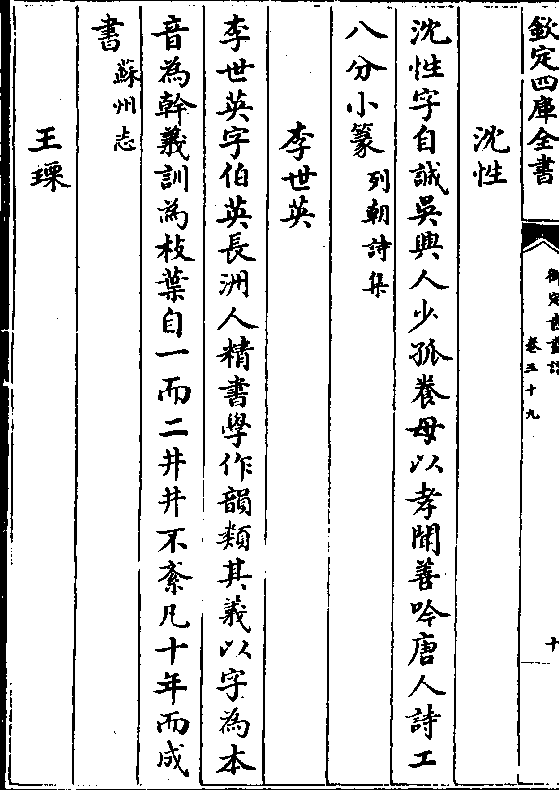 欽定四庫全書
御定書畫譜
卷三十九
十
沈性
沈性字自誠吳興人少孤養母以孝聞善吟唐人詩工
八分小篆列朝詩集
李世英
李世英字伯英長洲人精書學作韻類其義以字為本
音為幹義訓為枝葉自一而二井井不紊凡十年而成
書蘇州志
王璖